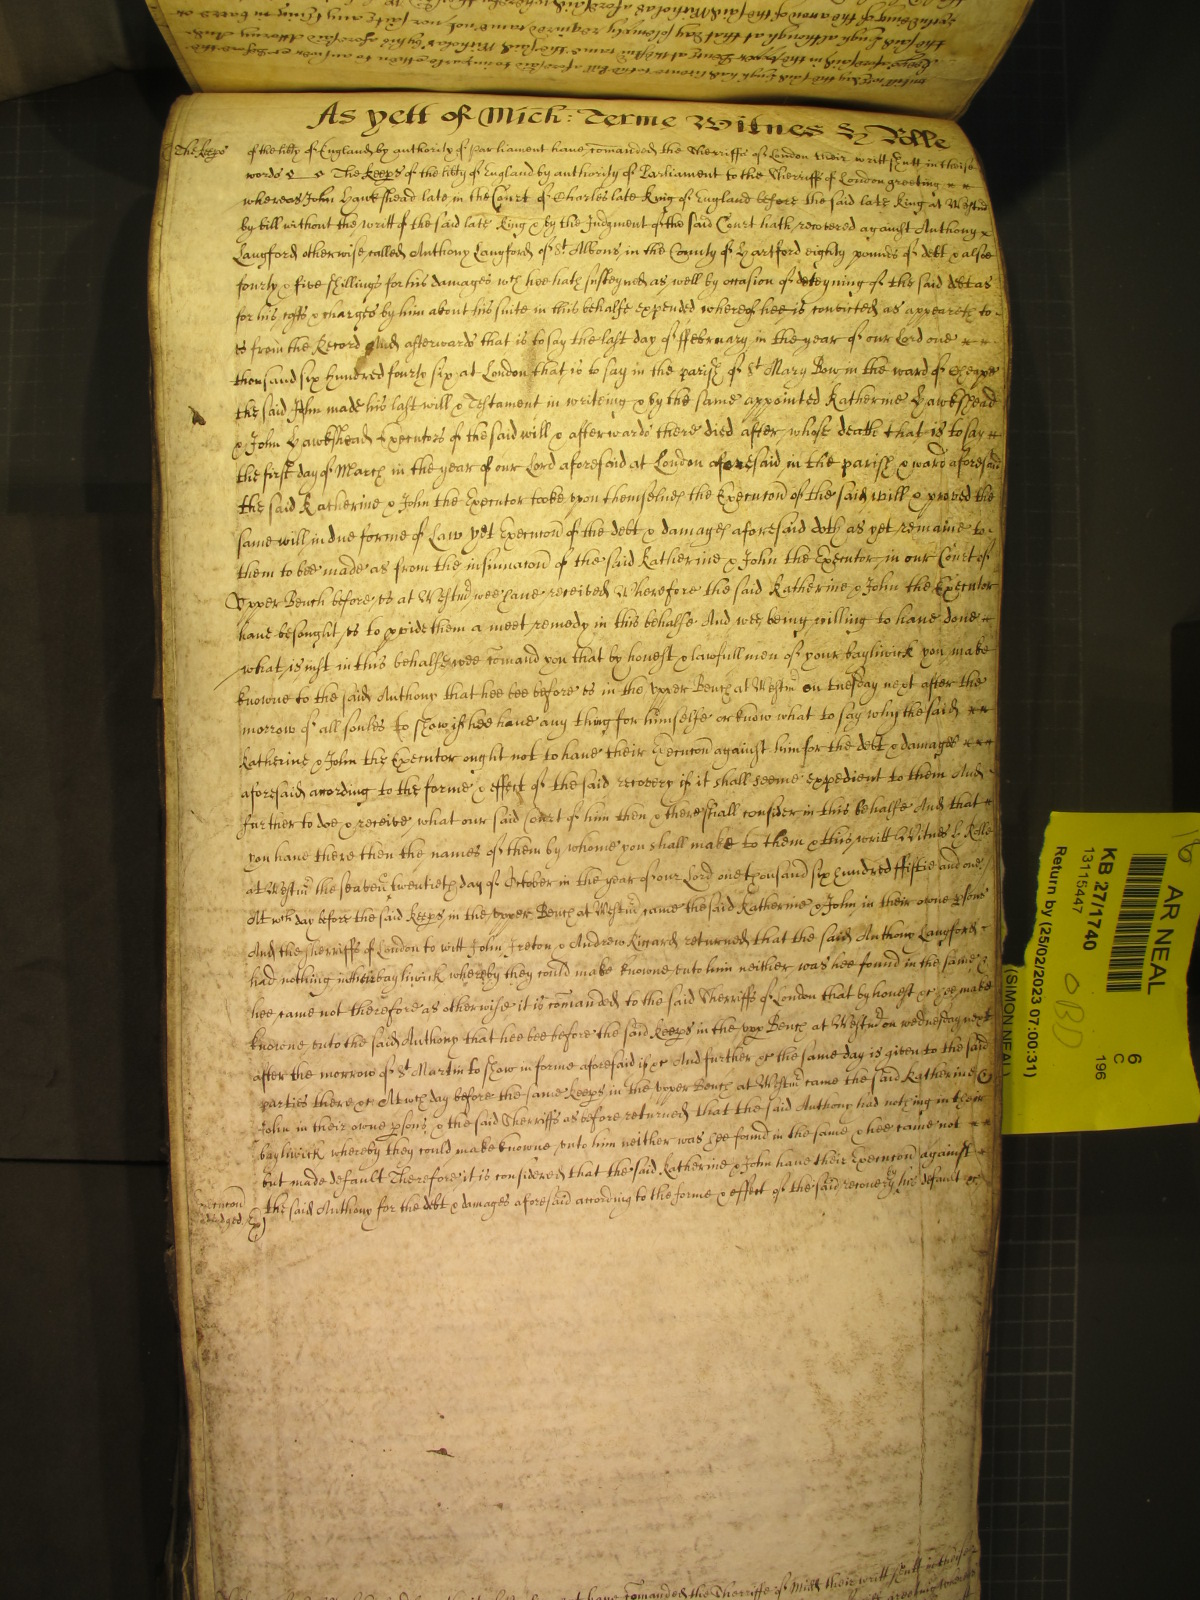 As yett of Mich: Terme Witnes H Rolle
The Keeps of the libty of England by authority of Parliament have comanded the Sherriffs of London their writt shutt in theise
words The Keeps of the libty of England by authority of Parliament to the Sherriffs of London greeting
whereas John Hawkshead late in the Court of Charles late King of England before the said late King at Westmr
by bill without the writt of the said late King & by the Judgment of the said Court hath recovered against Anthony
Langford otherwise called Anthony Langford of St Albons in the County of Hartford eighty pounds of debt & alsoe
fourty & five shillings for his damages wch hee hath susteyned as well by occasion of deteyning of the said debt as
for his costs & charges by him about his suite in this behalfe expended whereof hee is convicted as appeareth to
us from the Record And afterwards that is to say the last day of ffebruary in the year of our Lord one
thousand six hundred fourty six at London that is to say in the parish of St Mary Bow in the ward of Cheape
the said John made his last will & Testament in writeing & by the same appointed Katherine Hawkshead
& John Hawkshead Executors of the said will & afterwards there died after whose death that is to say
the first day of March in the year of our Lord aforesaid at London aforesaid in the parish & ward aforesaid
the said Katherine & John the Executor tooke upon themselves the Execucon of the said will & proved the
same will in due forme of Law yet Execucon of the debt & damages aforesaid doth as yet remaine to
them to bee made as from the insinuacon of the said Katherine & John the Executor in our Court of
Upper Bench before us at Westmr wee have received Wherefore the said Katherine & John the Executor
have besought us to pvide them a meet remedy in this behalfe And wee being willing to have done
what is iust in this behalfe wee comand you that by honest & lawfull men of your bayliwick you make
knowne to the said Anthony that hee bee before us in the upper Bench at Westmr on tuesday next after the
morrow of all soules to show if hee have any thing for himselfe or know what to say why the said
Katherine & John the Executor ought not to have their Execucon against him for the debt & damages
aforesaid according to the forme & effect of the said recovery if it shall seeme expedient to them And
further to doe & receive what our said Court of him then & there shall consider in this behalfe And that
you have there then the names of them by whome you shall make to them & this writt Witnes H Rolle
at Westmr the seaven twentieth day of October in the year of our Lord one thousand six hundred ffiftie and one
At wch day before the said Keeps in the upper Bench at Westmr came the said Katherine & John in their owne psons
And the Sherriffs of London to witt John Ireton & Andrew Ricards returned that the said Anthony Langford
had nothing in their bayliwick whereby they could make knowne unto him neither was hee found in the same &
hee came not therefore as otherwise it is comanded to the said Sherriffs of London that by honest &c hee make
knowne unto the said Anthony that hee bee before the said Keeps in the upp Bench at Westmr on wednesday next
after the morrow of St Martin to show in forme aforesaid if &c And further &c the same day is given to the said
parties there &c At wch day before the same Keeps in the upper Bench at Westmr came the said Katherine &
John in their owne psons & the said Sherriffs as before returned that the said Anthony had nothing in their
bayliwick whereby they could make knowne unto him neither was hee found in the same & hee came not
but made default Therefore it is considered that the said Katherine & John have their Execucon against
the said Anthony for the debt & damages aforesaid according to the forme & effect of the said recovery by his default &c
AR NEAL
KB 27/1740
13115447
Return by (25/02/2023 07:00:31)
(SIMON NEAL)
6
C
196